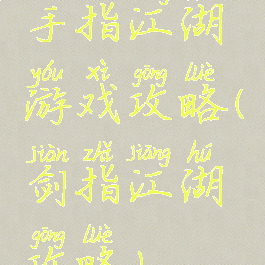 手指江湖
yóu xì gōng lüè
游戏攻略(
jiàn zhǐ jiāng hú
剑指江湖
gōng lüè
攻略)